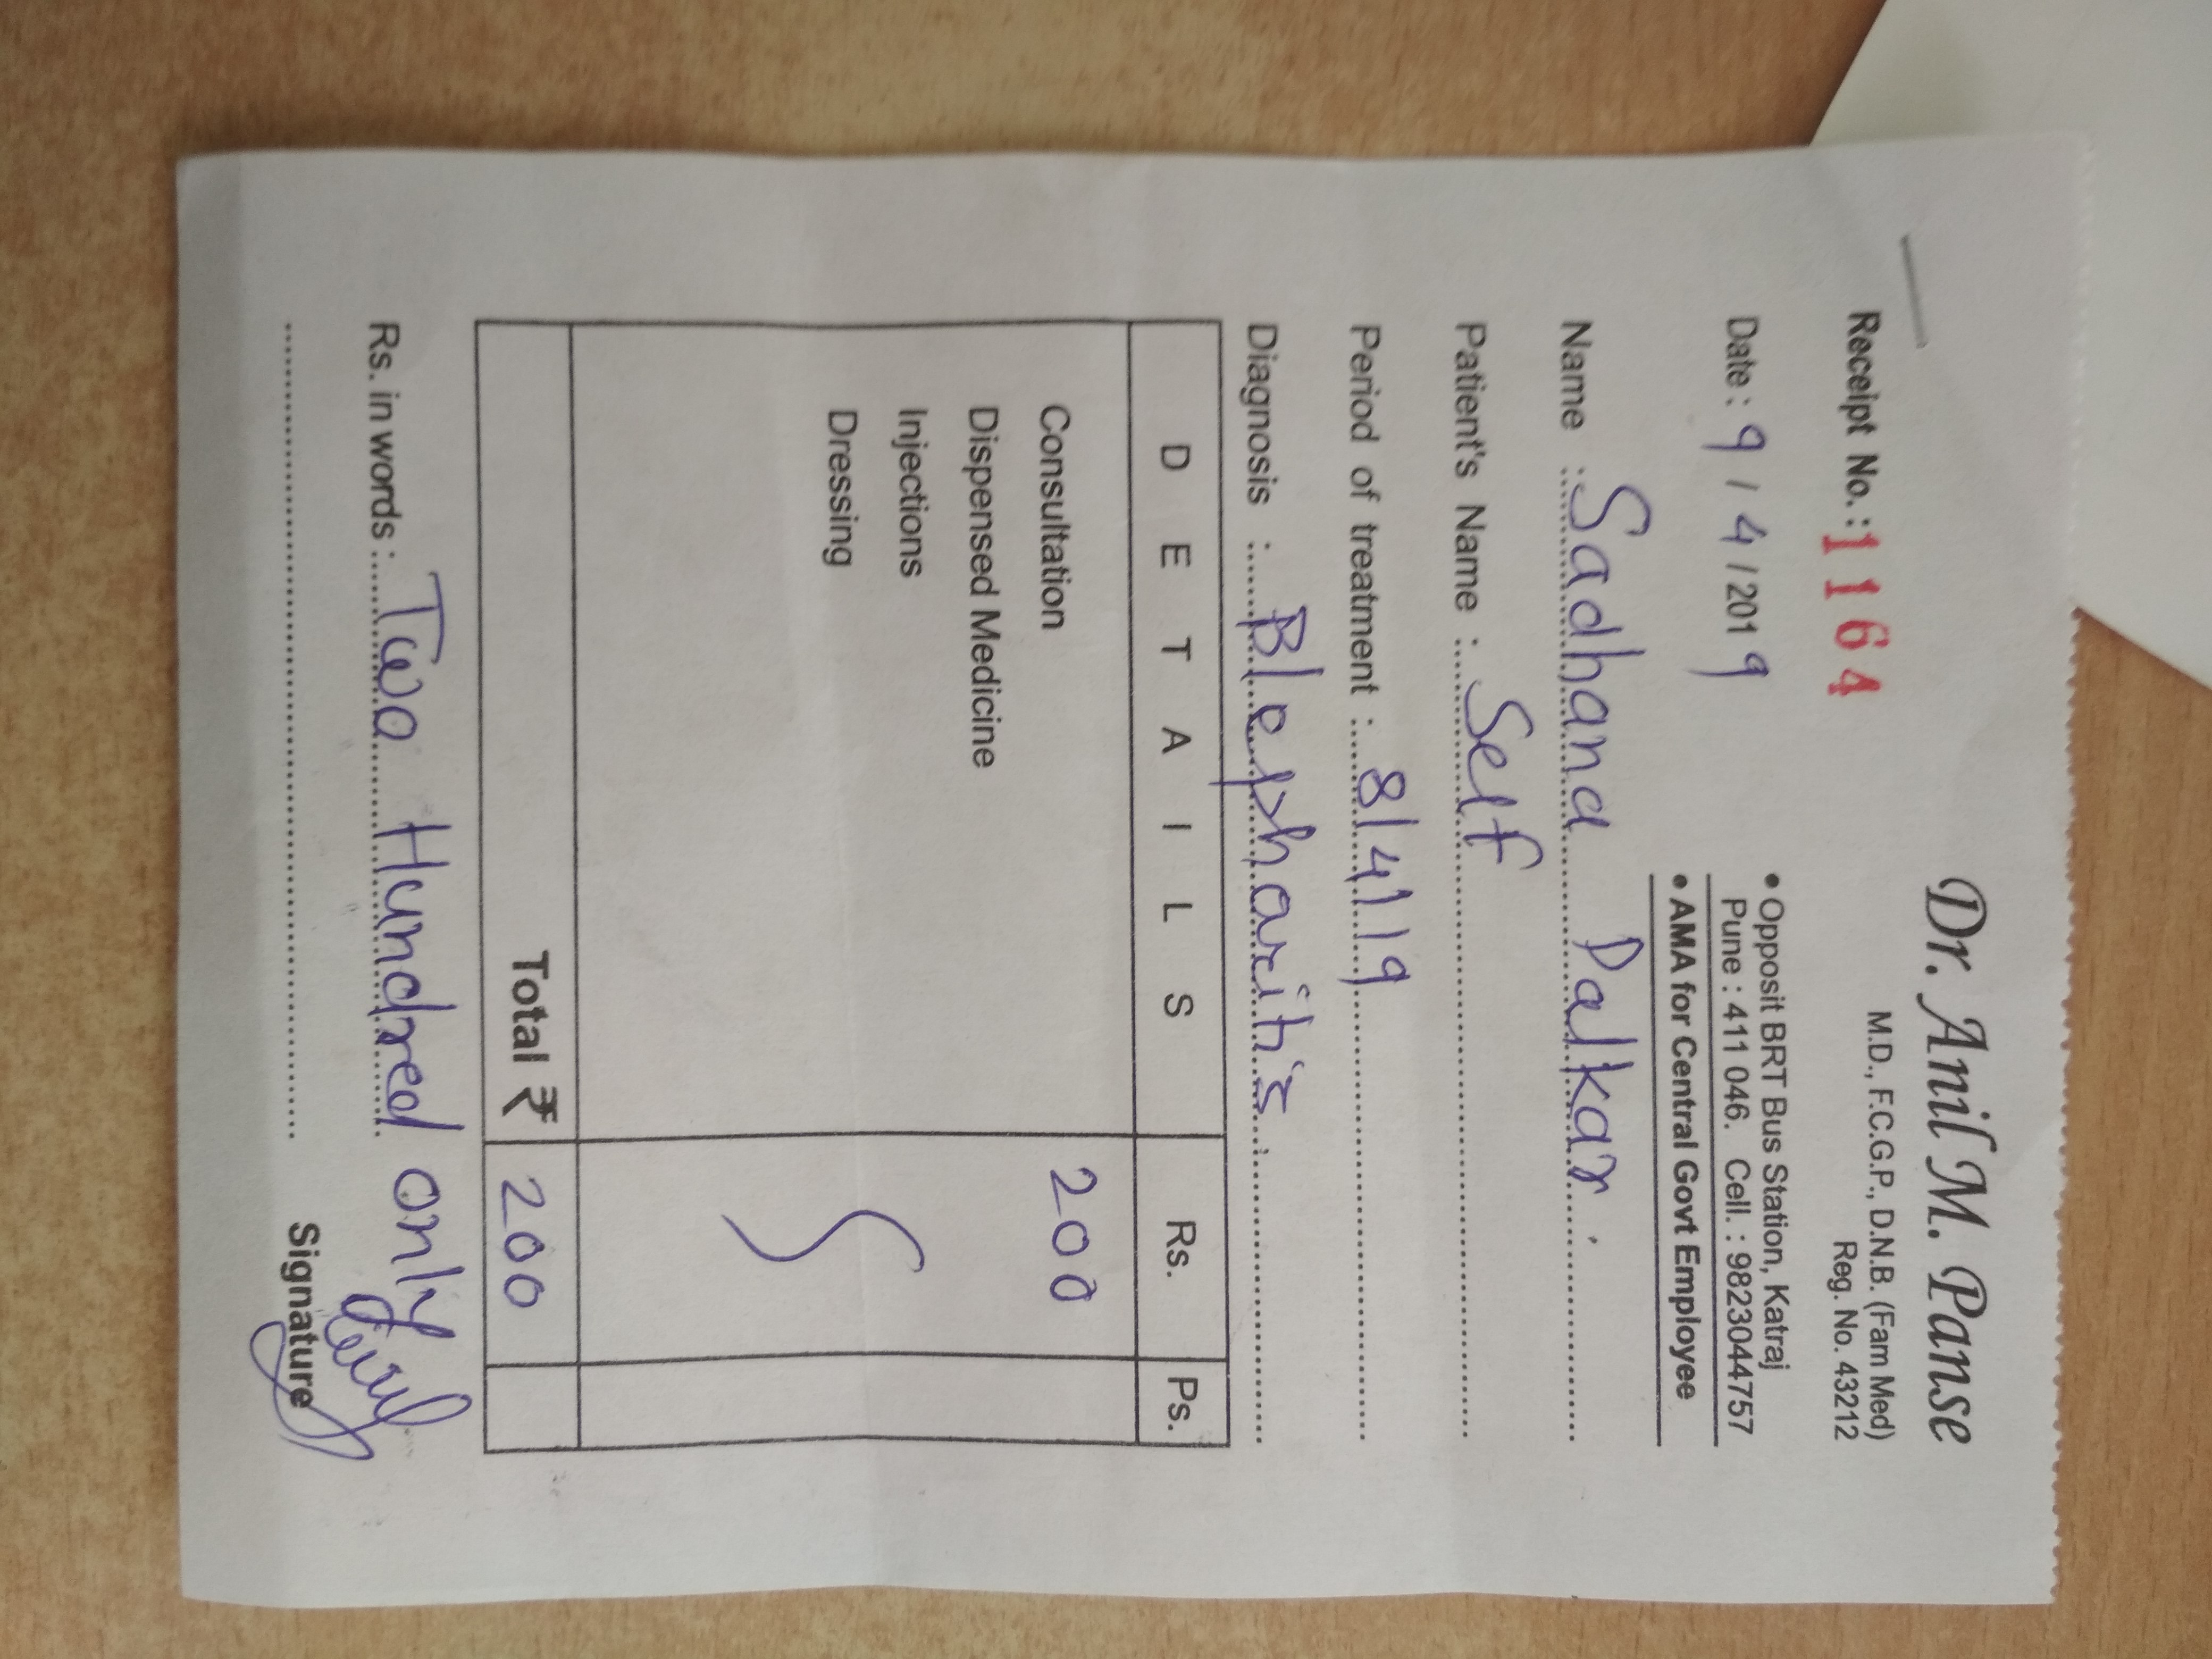 Dr. Anil M. Panse
M.D., F.C.G.P., D.N.B. (Fam Med)
Reg. No. 43212
Receipt No.: 1164
• Opposit BRT Bus Station, Katraj
Pune : 411 046. Cell. : 9823044757
Date : 9 / 4 / 2019
• AMA for Central Govt Employee
Name : Sadhana Palkar.
Patient's Name : Self
Period of treatment : 8/4/19
Diagnosis : Blepharitis
DETAILS Rs. Ps.
Consultation 200
Dispensed Medicine
Injections
Dressing
Total ₹ 200
Rs. in words : Two Hundred only
Signature